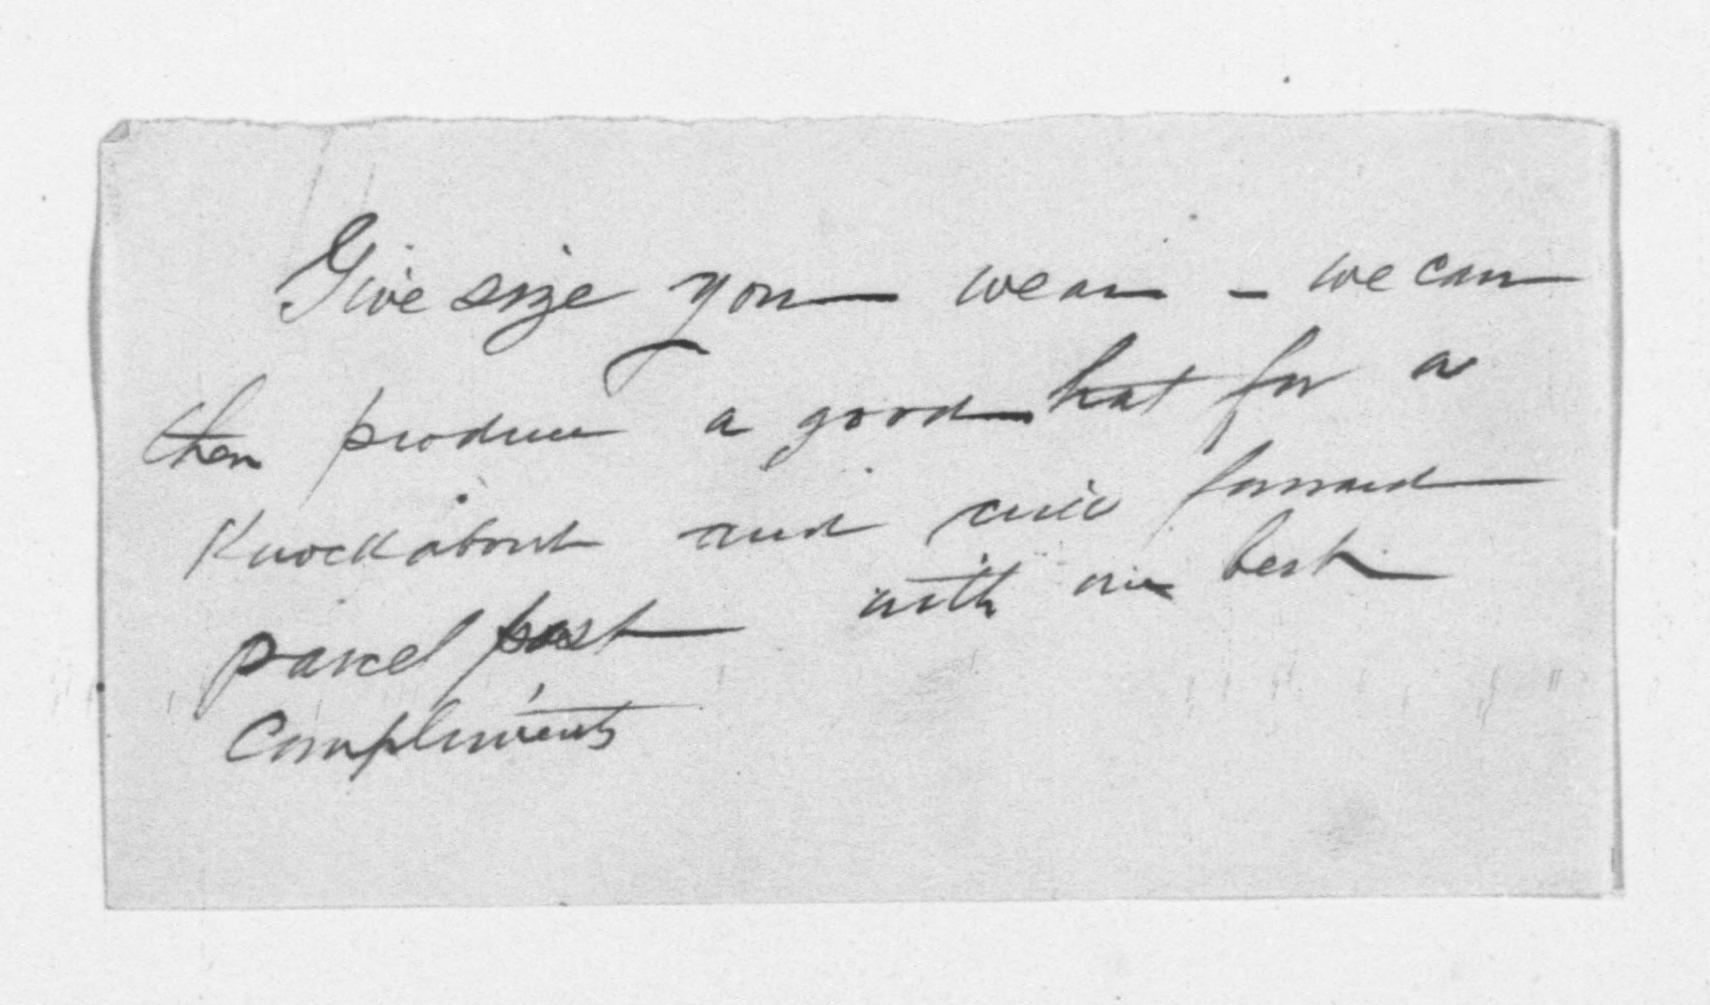 Give size you wear - we can
then produce a good hat for a
Knockabout and will forward
parcel post with our best
Compliments